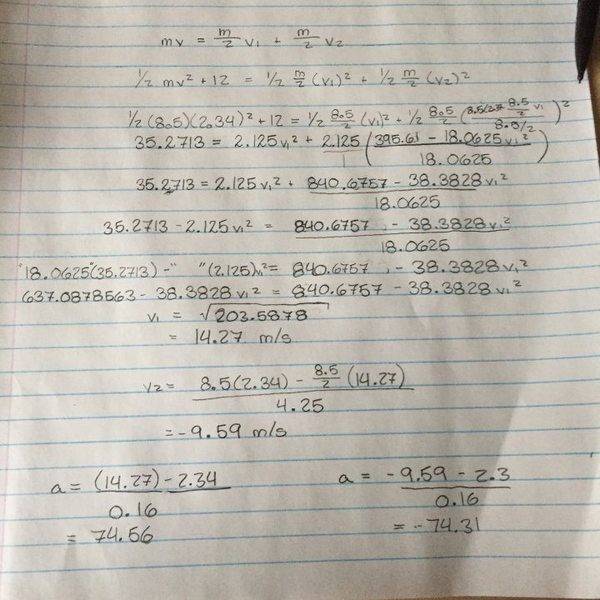 mv = m/2 v₁ + m/2 v₂
1/2 mv² + 12 = 1/2 m/2 (v₁)² + 1/2 m/2 (v₂)²
1/2 (8.5)(2.34)² + 12 = 1/2 8.5/2 (v₁)² + 1/2 8.5/2 ( 8.5/2 v₁ / 8.5/2 )²
35.2713 = 2.125 v₁² + 2.125/1 ( 395.61 - 18.0625 v₁² / 18.0625 )
35.2713 = 2.125 v₁² + 840.6757 - 38.3828 v₁² / 18.0625
35.2713 - 2.125 v₁² = 840.6757 - 38.3828 v₁² / 18.0625
"18.0625"(35.2713) - " "(2.125)v₁² = 840.6757 - 38.3828 v₁²
637.0878563 - 38.3828 v₁² = 840.6757 - 38.3828 v₁²
v₁ = √203.5878
= 14.27 m/s
v₂ = 8.5(2.34) - 8.5/2 (14.27) / 4.25
= -9.59 m/s
a = (14.27) - 2.34 / 0.16
= 74.56
a = -9.59 - 2.3 / 0.16
= -74.31